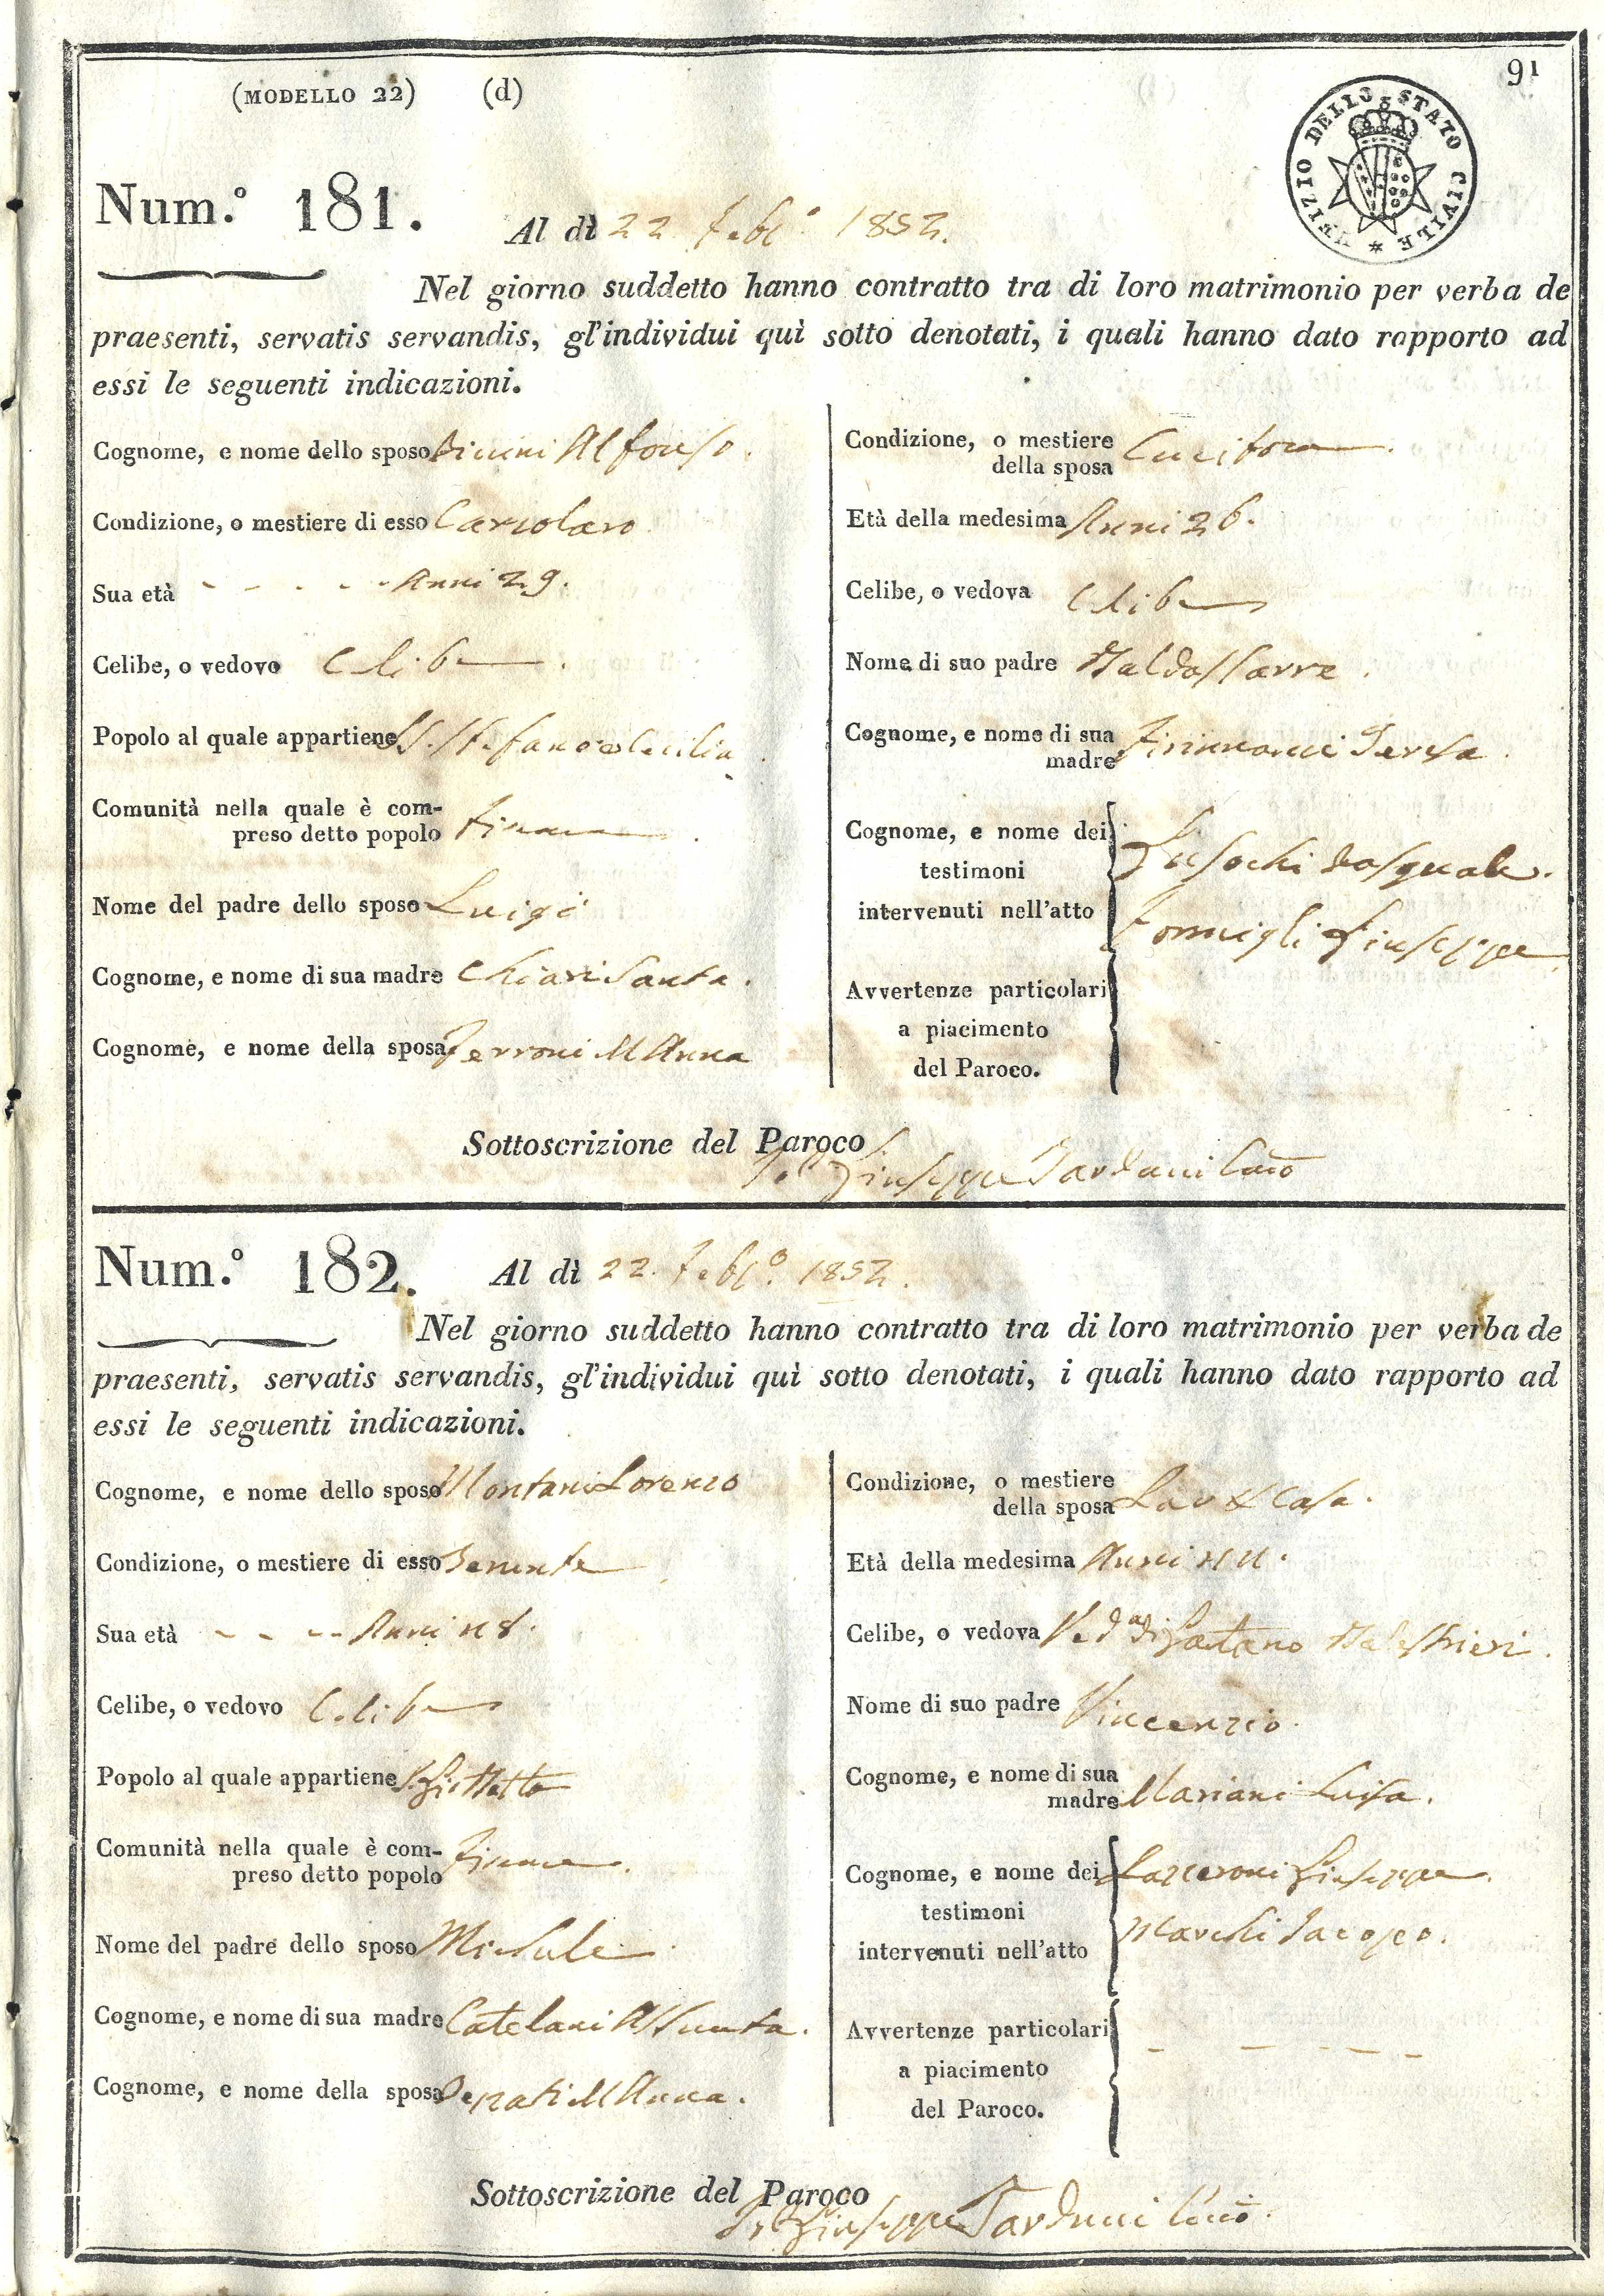 91
(MODELLO 22) (d)
UFIZIO DELLO STATO CIVILE
Num.° 181. Al dì 22 Feb° 1852.
Nel giorno suddetto hanno contratto tra di loro matrimonio per verba de
praesenti, servatis servandis, gl'individui quì sotto denotati, i quali hanno dato rapporto ad
essi le seguenti indicazioni.
Cognome, e nome dello sposo Alfonso.
Condizione, o mestiere di esso Cartolaro
Sua età Anni 29.
Celibe, o vedovo Celibe.
Popolo al quale appartiene SS. Stefano e Cecilia.
Comunità nella quale è com-
preso detto popolo Firenze.
Nome del padre dello sposo Luigi
Cognome, e nome di sua madre Chiari Santa.
Cognome, e nome della sposa Ferroni M Anna
Condizione, o mestiere
della sposa Cucitora.
Età della medesima Anni 26.
Celibe, o vedova Celibe
Nome di suo padre Baldassarre.
Cognome, e nome di sua
madre Teresa.
Cognome, e nome dei
testimoni
intervenuti nell'atto
Pasquale.
Formigli Giuseppe
Avvertenze particolari
a piacimento
del Paroco.
Sottoscrizione del Paroco
Giuseppe Tarducci
Num.° 182. Al dì 22. Feb°. 1852.
Nel giorno suddetto hanno contratto tra di loro matrimonio per verba de
praesenti, servatis servandis, gl'individui quì sotto denotati, i quali hanno dato rapporto ad
essi le seguenti indicazioni.
Cognome, e nome dello sposo Montani Lorenzo
Condizione, o mestiere di esso
Sua età Anni
Celibe, o vedovo Celibe
Popolo al quale appartiene
Comunità nella quale è com-
preso detto popolo Firenze.
Nome del padre dello sposo Michele
Cognome, e nome di sua madre Catelani Assunta.
Cognome, e nome della sposa M Anna.
Condizione, o mestiere
della sposa Casa.
Età della medesima Anni
Celibe, o vedova Ved.a di Gaetano Balestrieri.
Nome di suo padre Vincenzio.
Cognome, e nome di sua
madre Mariani Luisa.
Cognome, e nome dei
testimoni
intervenuti nell'atto
Lazzeroni Giuseppe.
Marchi Jacopo.
Avvertenze particolari
a piacimento
del Paroco.
Sottoscrizione del Paroco
Giuseppe Tarducci